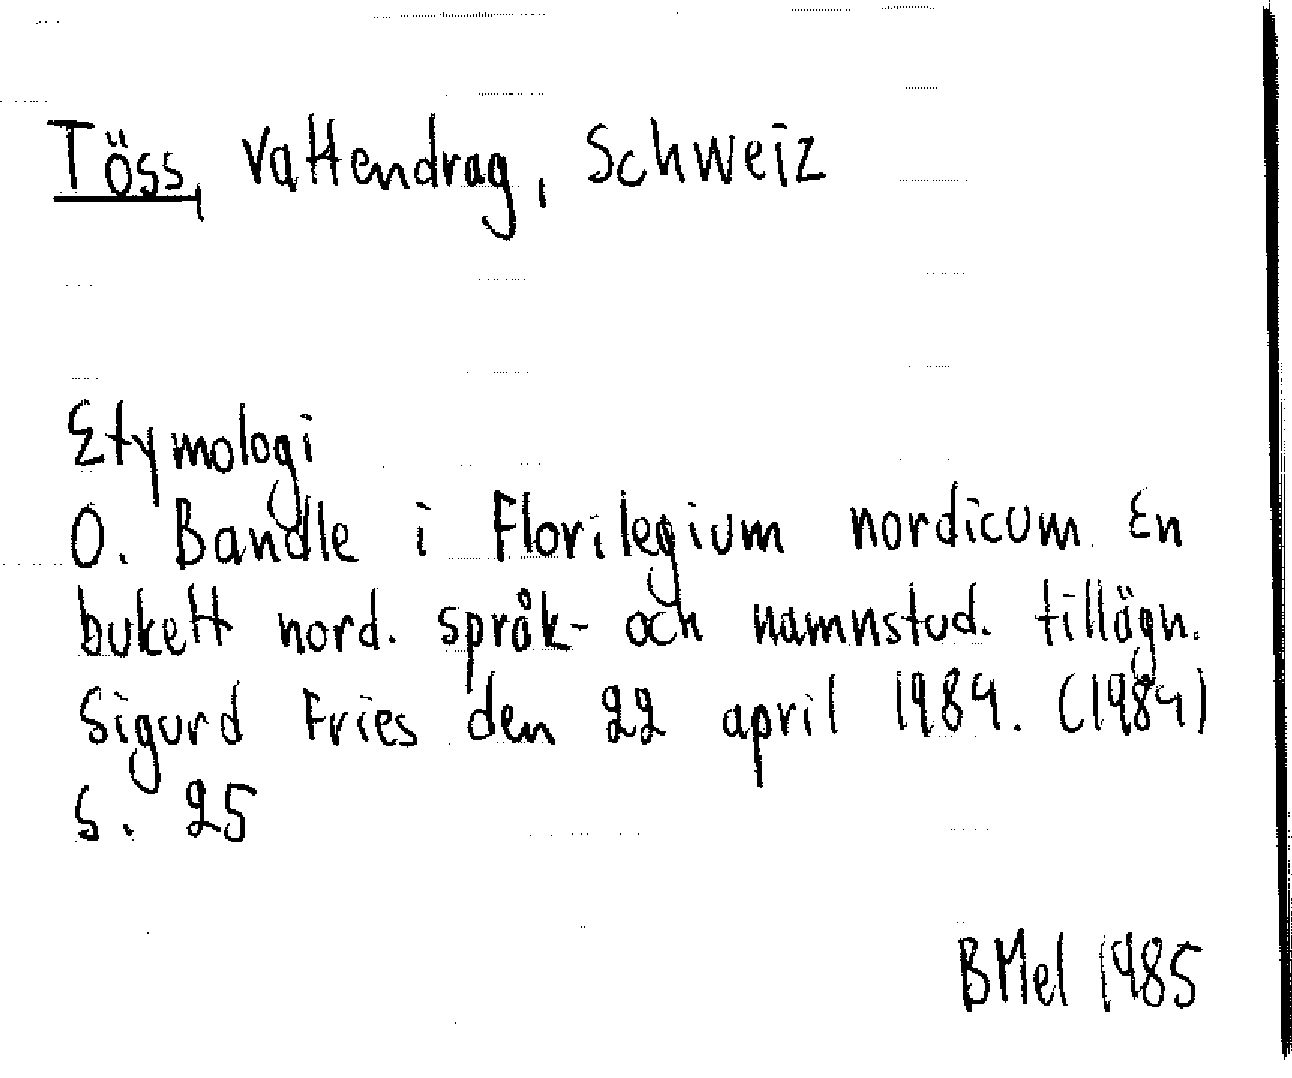 Töss, vattendrag, Schweiz
Etymologi
O. Bandle i Florilegium nordicum. En
bukett nord. språk- och namnstud. tillägn.
Sigurd Fries den 22 april 1984. (1984)
s. 25
BMel 1985